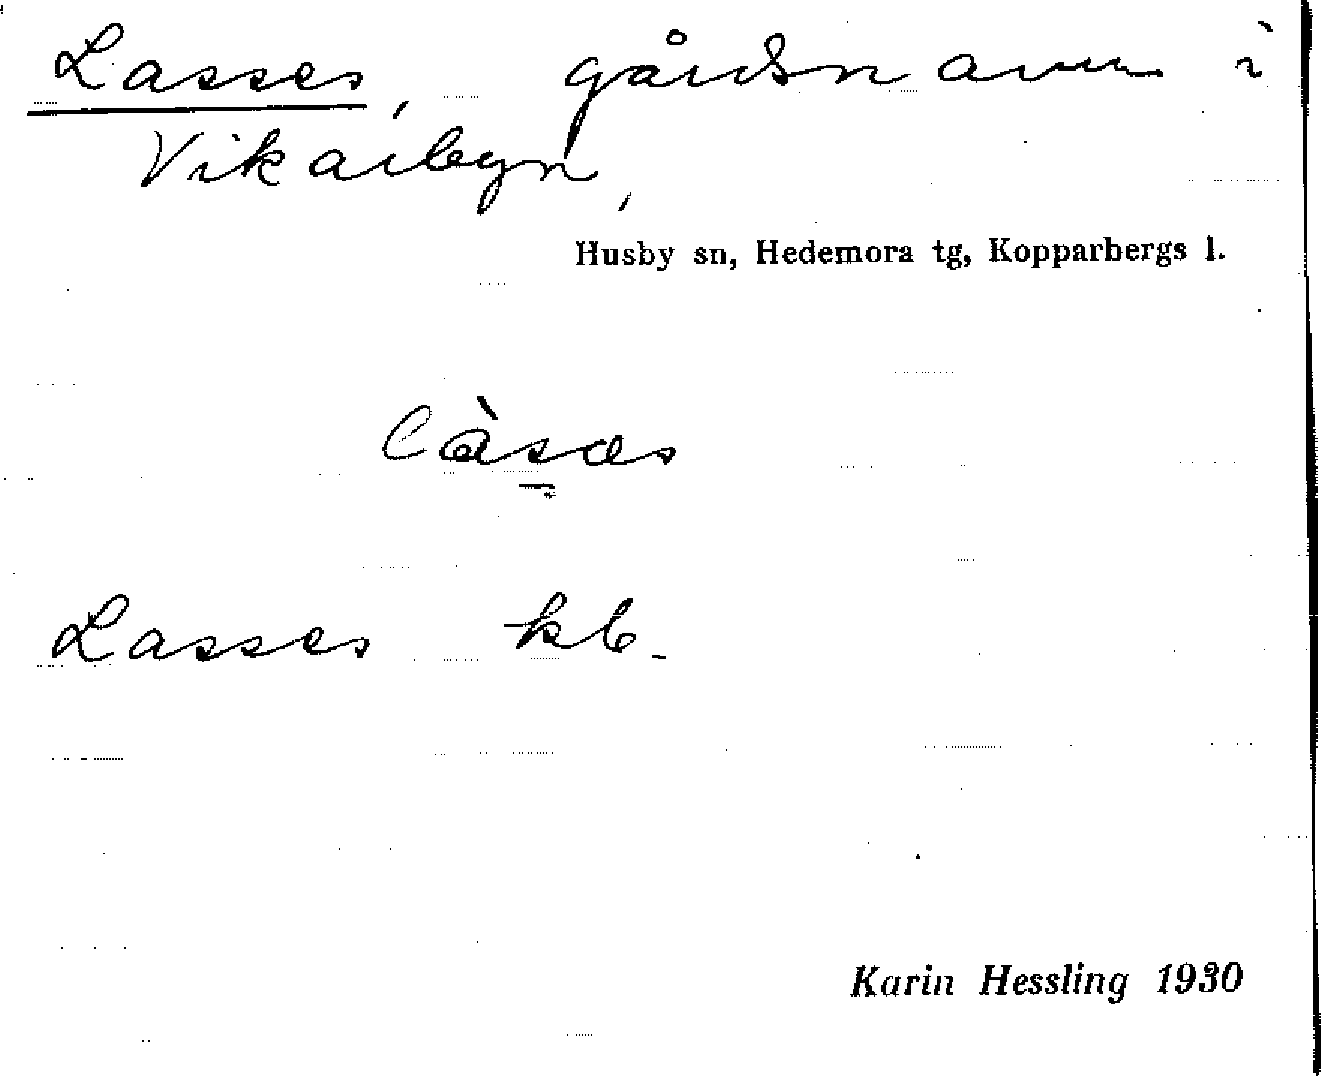 Lasses, gårdsnamn i
Vikarbyn,
Husby sn, Hedemora tg, Kopparbergs l.
làsæs
Lasses kb.
Karin Hessling 1930